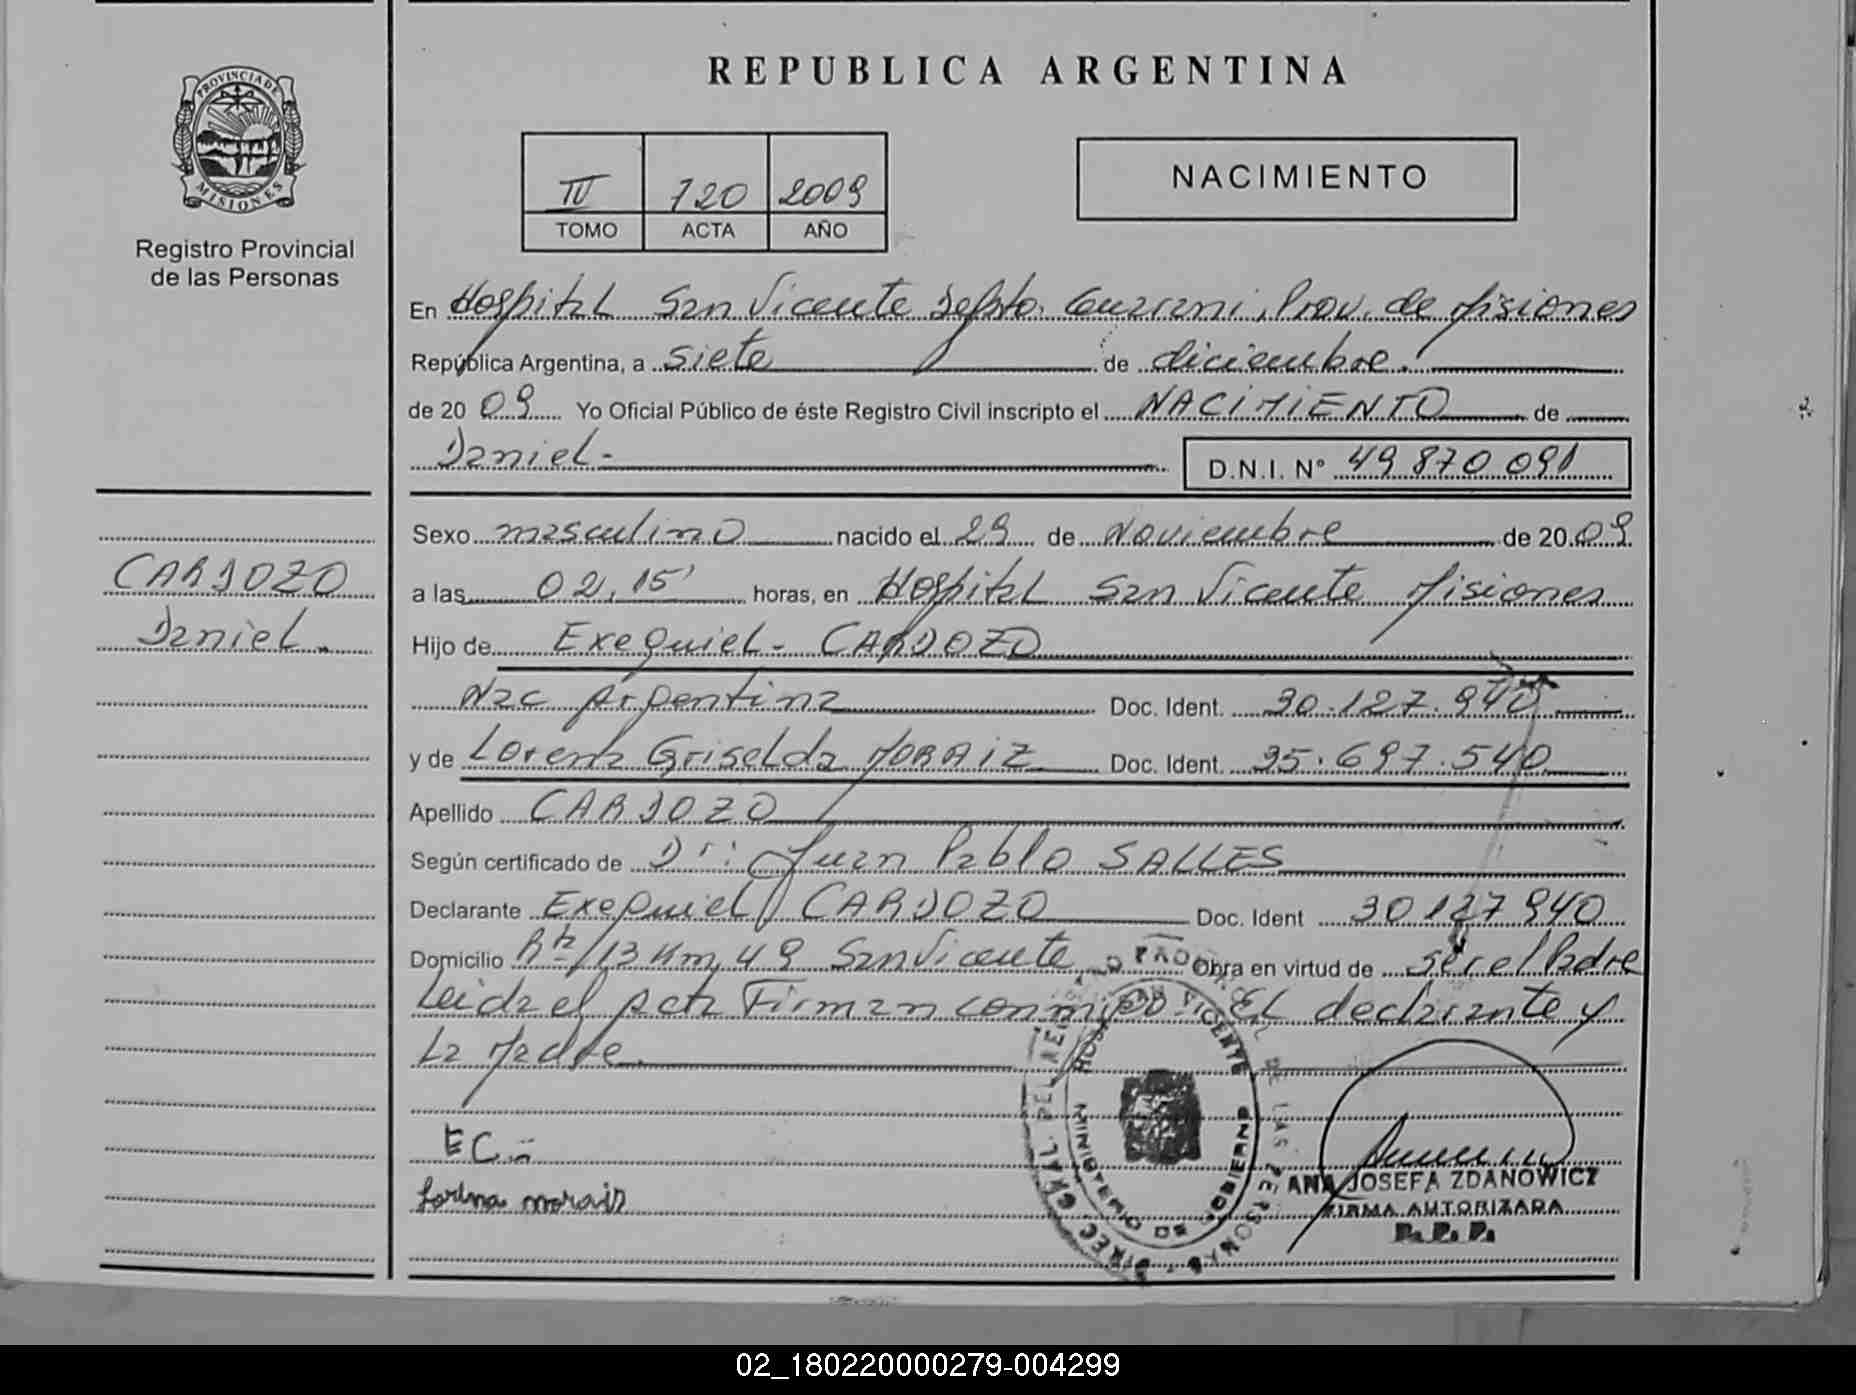 REPUBLICA ARGENTINA
PROVINCIA DE
MISIONES
Registro Provincial
de las Personas
IV 120 2009
TOMO ACTA AÑO
NACIMIENTO
En Hospital San Vicente Depto. Guarani, Prov. de Misiones
República Argentina, a siete de diciembre.
de 20 09 Yo Oficial Público de éste Registro Civil inscripto el NACIMIENTO de
Daniel.-
D.N.I. N° 49 870 091
CARDOZO
Daniel.
Sexo masculino nacido el 29 de Noviembre de 20 09
a las 02,15' horas, en Hospital San Vicente Misiones
Hijo de Exequiel - CARDOZO
Nac Argentina Doc. Ident. 30.127.940
y de Lorena Griselda MORAIZ Doc. Ident. 35.697.540
Apellido CARDOZO
Según certificado de Dr: Juan Pablo SALLES
Declarante Exequiel CARDOZO Doc. Ident 30 127 940
Domicilio Rta/13 Km, 49 San Vicente Obra en virtud de ser el Padre
Leida el acta Firman conmigo El declarante y
La Madre.
EC
Lorena morais
HOSP. SAN VICENTE
DIREC. GRAL. DEL REGISTRO PROVINCIAL DE LAS PERSONAS
GOBIERNO
ANA JOSEFA ZDANOWICZ
FIRMA AUTORIZADA
R. P. P.
02_180220000279-004299